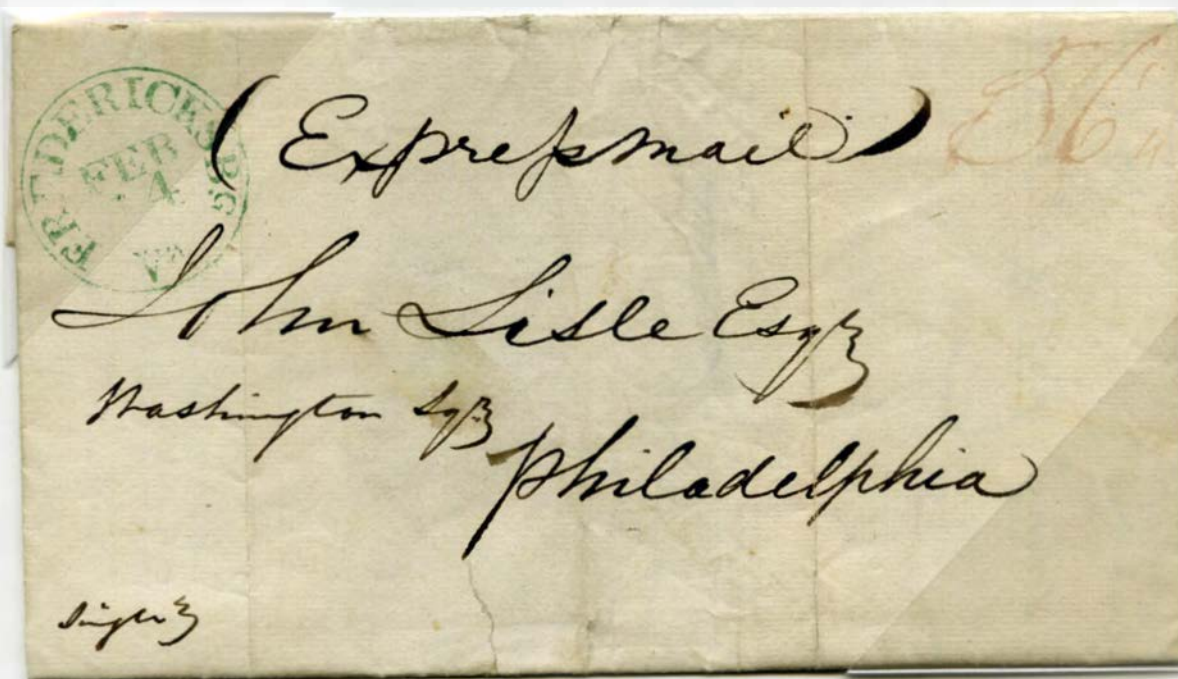 FREDERICKSBG.
FEB
4
Va
(Expreſsmail)
56¼
John Lisle Esqr
Washington Sqr
Philadelphia
Single